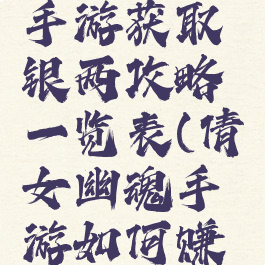 手游获取
银两攻略
一览表(倩
女幽魂手
游如何赚